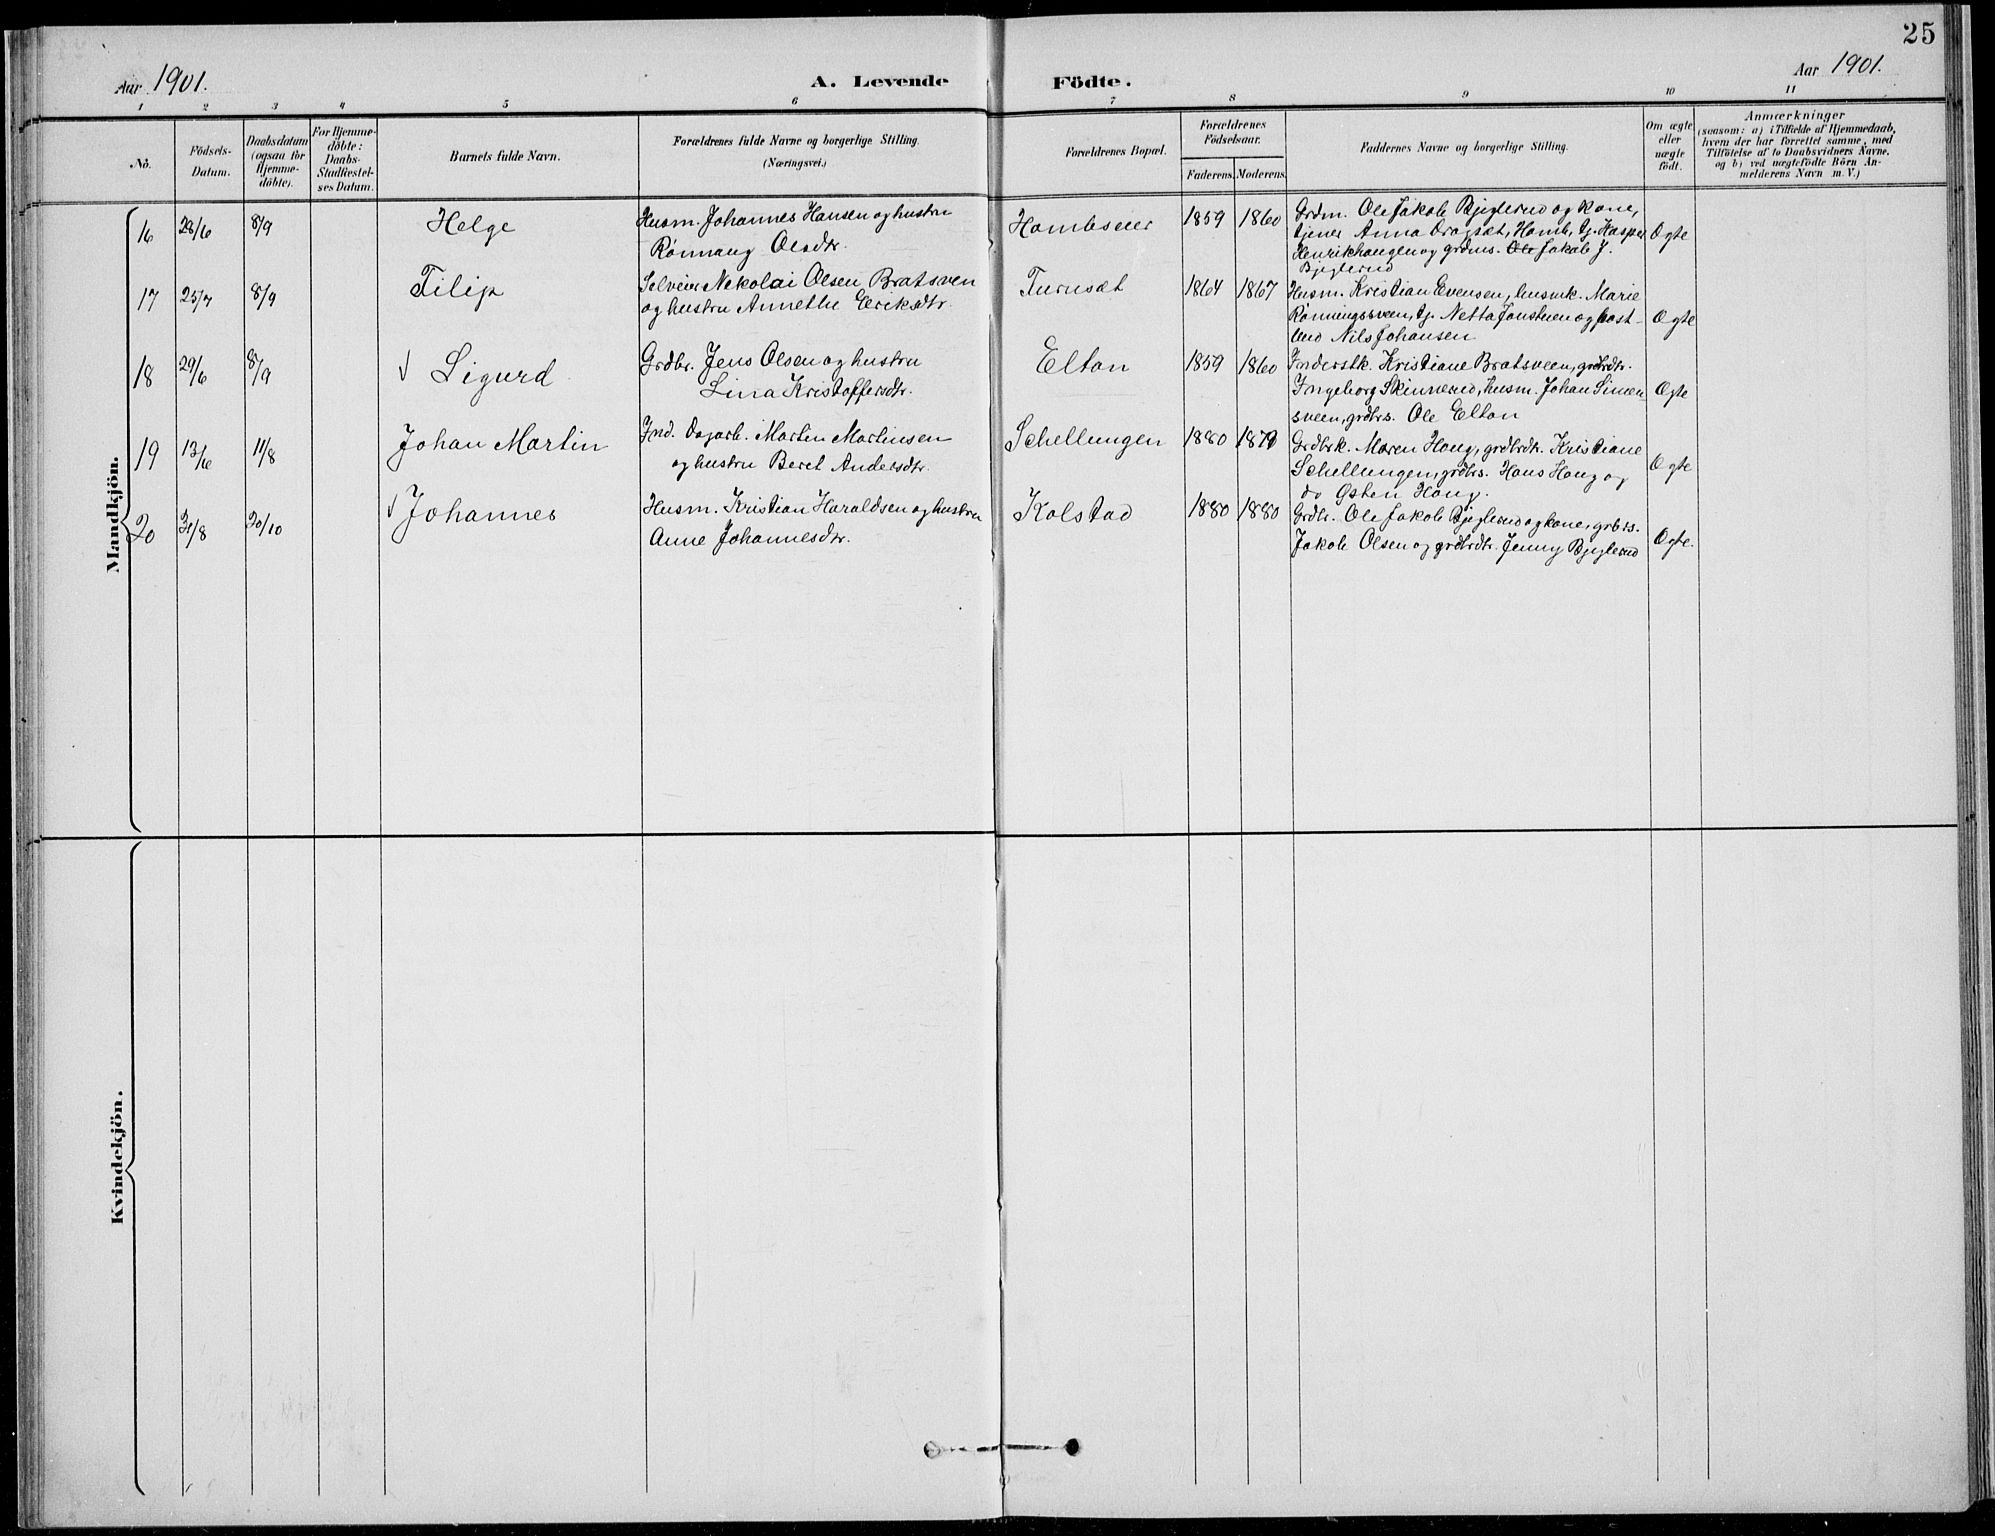 25
Aar 1901.
A. Levende Födte.
Aar 1901.
1 2 3 4 5 6 7 8 9 10 11
No.
Födsels-Datum.
Daabsdatum (ogsaa for Hjemme-döbte).
For Hjemme-döbte: Daabs-Stadfæstel-ses Datum.
Barnets fulde Navn.
Forældrenes fulde Navne og borgerlige Stilling. (Næringsvei.)
Forældrenes Bopæl.
Forældrenes Födselsaar.
Faderens. Moderens.
Faddernes Navne og borgerlige Stilling.
Om ægte eller uægte födt.
Anmærkninger
(saasom: a) i Tilfælde af Hjemmedaab,
hvem der har forrettet samme, med
Tilföielse af to Daabsvidners Navne.
og b) ved uægtefödte Börn An-
melderens Navn m. V.)
Mandkjön.
16 28/6 8/9 Helge
Husm. Johannes Hansen og hustru
Rønnaug Olsdtr.
1859 1860
Grdm. Ole Jakob Bjeglerud og kone,
tjener Anna Dragsæt, Homb, tj. Kasper
Henrikhaugen og grdms. Ole Jakob J.
Bjeglerud
Ægte
17 25/7 8/9 Filip
Selveier Nekolai Olsen Bratsven
og hustru Annethe Eriksdtr.
Turnsæt
1864 1867
Husm. Kristian Evensen, husmk. Marie
Rønningssveen, tj. Netta Jonstuen og post-
bud Nils Johansen
Ægte
18 29/6 8/9 Sigurd
Grdbr. Jens Olsen og hustru
Lina Kristoffersdtr.
Elton
1859 1860
Inderstk. Kristiane Bratsveen, grdbrdtr.
Ingeborg Skinnerud, husm. Johan Simen-
sveen, grdbrs. Ole Elton
Ægte
19 13/6 11/8 Johan Martin
Ind. dagarb. Martin Martinsen
og hustru Beret Andersdtr.
Schellungen
1880 1879
Grdbrk. Maren Haug, grdbrdtr. Kristiane
Schellungen, grdbrs. Hans Haug og
do Østen Haug.
Ægte
20 31/8 20/10 Johannes
Husm. Kristian Haraldsen og hustru
Anne Johannesdtr.
Kolstad
1880 1880
Grdbr. Ole Jakob Bjeglerud og kone, grbrs.
Jakob Olsen og grdbrdtr. Jenny Bjeglerud
Ægte.
Kvindekjön.